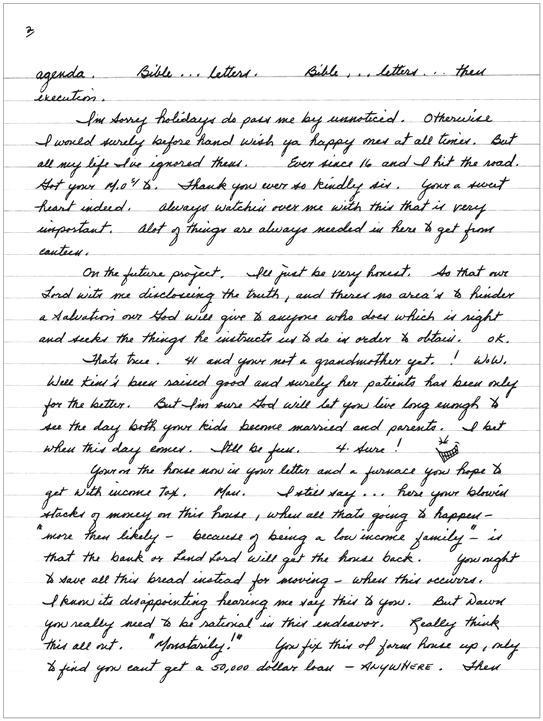 3
agenda. Bible... letters. Bible... letters... then
execution.
I'm sorry holidays do pass me by unnoticed. Otherwise
I would surely before hand wish ya happy ones at all times. But
all my life I've ignored them. Ever since 16 and I hit the road.
Got your M.O. Thank you ever so kindly sis. Your a sweet
heart indeed. Always watchin over me with this that is very
important. Alot of things are always needed in here to get from
canteen.
On the future project. I'll just be very honest. So that our
Lord wits me discloseing the truth, and theres no area's to hinder
a Salvation our God will give to anyone who does which is right
and seeks the things he instructs us to do in order to obtain. OK.
Thats true. 41 and your not a grandmother yet. ! WoW.
Well Kim's been raised good and surely her patients has been only
for the better. But I'm sure God will let you live long enough to
see the day both your kids become married and parents. I bet
when this day comes. It'll be fun. 4. Sure!
Your on the house now is your letter and a furnace you hope to
get with income tax. Man. I still say... here your blowin
stacks of money on this house, when all thats going to happen -
"more then likely - because of being a low income family" - is
that the bank or Land Lord will get the house back. You ought
to save all this bread instead for moving - when this occurrs.
I know its disappointing hearing me say this to you. But Dawn
you really need to be rational in this endeavor. Really think
this all out. "Monatarily!" You fix this ol farm house up, only
to find you cant get a 50,000 dollar loan - ANYWHERE. Then